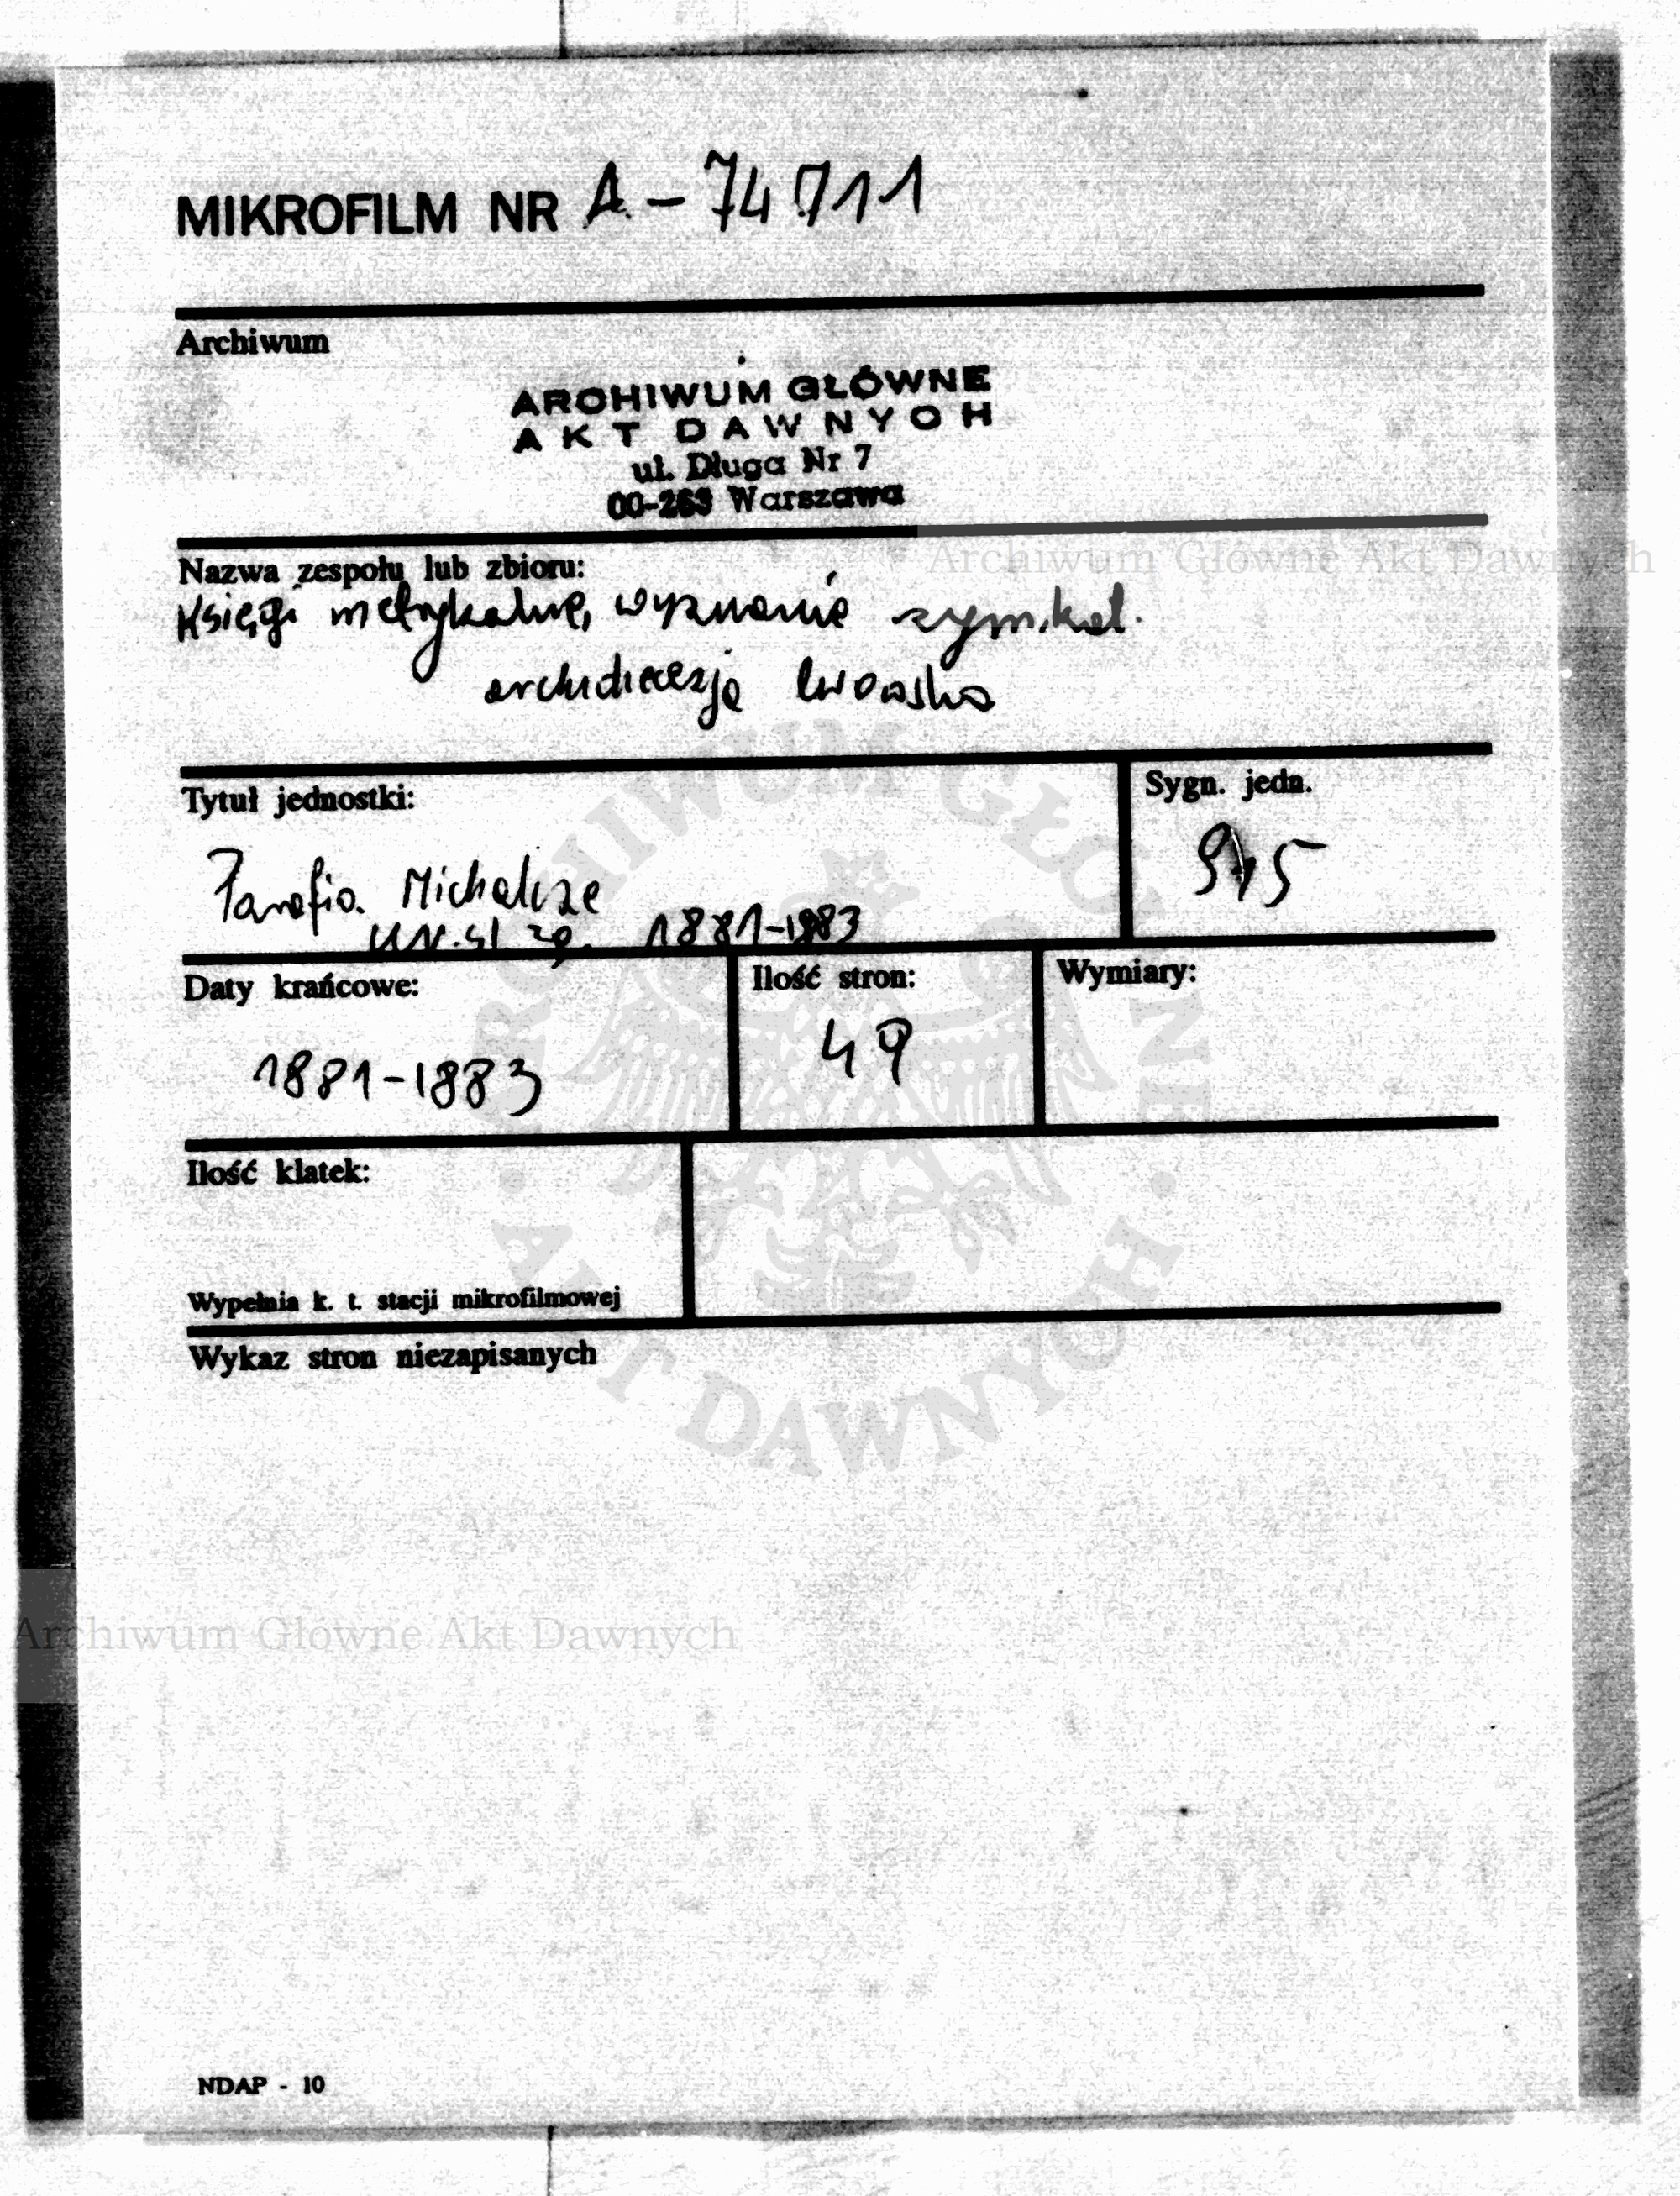 MIKROFILM NR A-74711
Archiwum
ARCHIWUM GŁÓWNE
AKT DAWNYCH
ul. Długa Nr 7
00-263 Warszawa
Archiwum Główne Akt Dawnych
Nazwa zespołu lub zbioru:
Księgi metrykalne, wyznanie rzym.kat.
archidiecezja lwowska
Tytuł jednostki:
Sygn. jedn.
Parafia Michalcze
UN. śl. zg. 1881-1883
Daty krańcowe:
Ilość stron:
Wymiary:
1881-1883
49
Ilość klatek:
Wypełnia k. t. stacji mikrofilmowej
Wykaz stron niezapisanych
ARCHIWUM GŁÓWNE · AKT DAWNYCH ·
Archiwum Główne Akt Dawnych
NDAP - 10